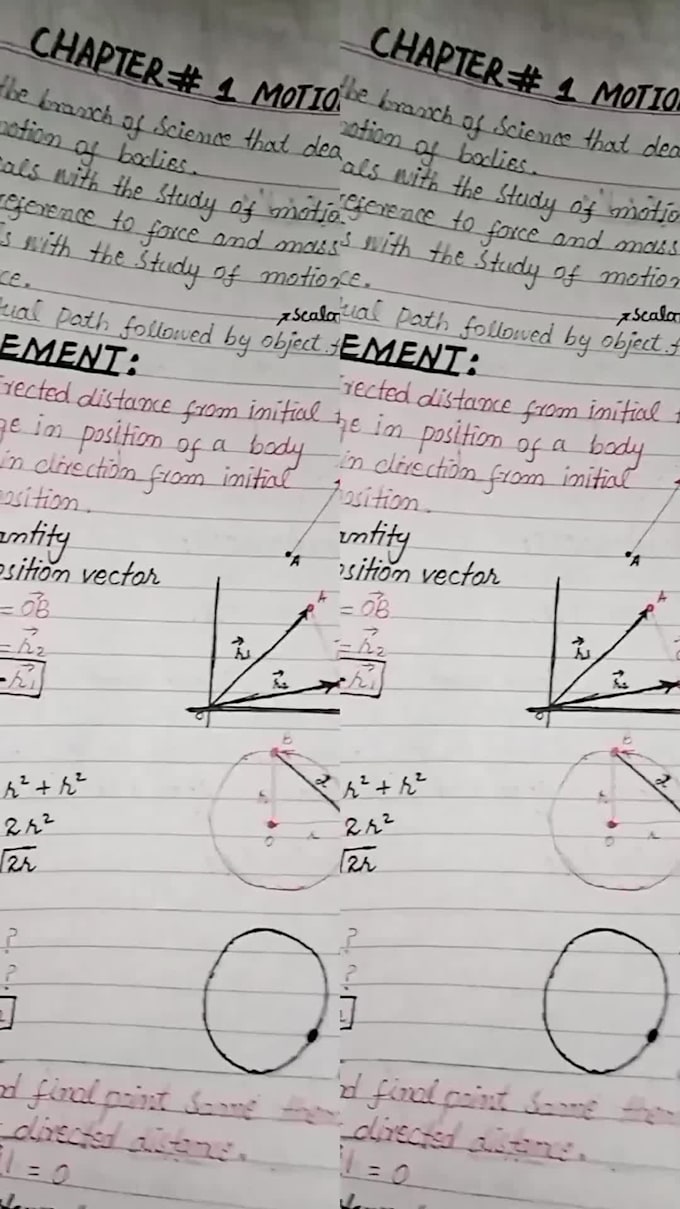 CHAPTER # 1 MOTIO
the branch of Science that dea
motion of bodies.
als with the study of motio
reference to force and mass
s with the study of motion
ce.
scalar
tual path followed by object
EMENT:
rected distance from initial
ge in position of a body
in direction from initial
osition.
antity
A
osition vector
= OB
A
= r₂
r₁
- r₁
r₂
O
B
r² + r²
2r²
√2r
O
r
?
?
d final point same then
directed distance.
= 0
CHAPTER # 1 MOTIO
the branch of Science that dea
motion of bodies.
als with the study of motio
reference to force and mass
s with the study of motion
ce.
scalar
tual path followed by object
EMENT:
rected distance from initial
ge in position of a body
in direction from initial
osition.
antity
A
osition vector
= OB
A
= r₂
r₁
- r₁
r₂
O
B
r² + r²
2r²
√2r
O
r
?
?
d final point same then
directed distance.
= 0